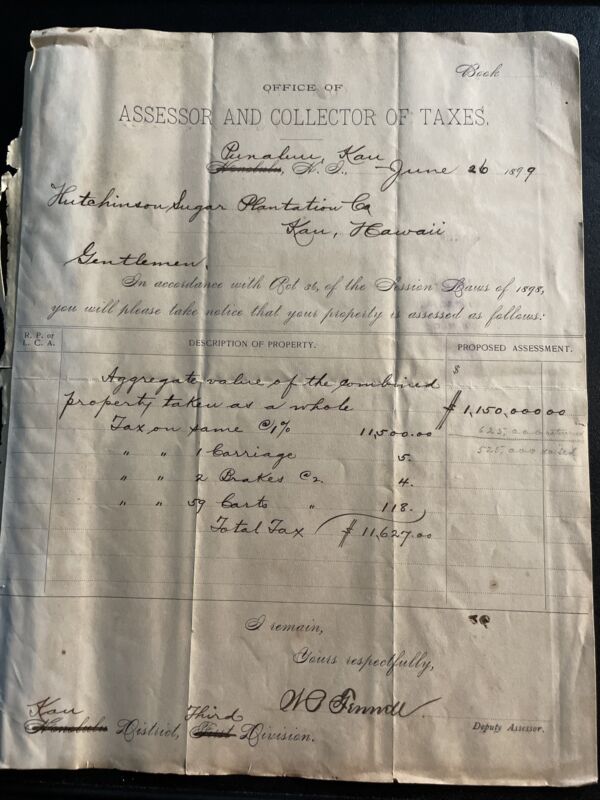 Book
OFFICE OF
ASSESSOR AND COLLECTOR OF TAXES.
Punaluu, Kau
Honolulu, H. I., June 26 1899
Hutchinson Sugar Plantation Co
Kau, Hawaii
Gentlemen,
In accordance with Act 36, of the Session Laws of 1898,
you will please take notice that your property is assessed as follows:
R. P. or L. C. A. DESCRIPTION OF PROPERTY. PROPOSED ASSESSMENT.
$
Aggregate value of the combined
property taken as a whole $ 1,150,000 00
Tax on same @1% 11,500.00 625,000
" " 1 Carriage 5. 525,000 raised
" " 2 Brakes @2. 4.
" " 59 Carts " 118.
Total Tax $ 11,627.00
I remain,
Yours respectfully,
Kau Third
Honolulu District, First Division.
Deputy Assessor.